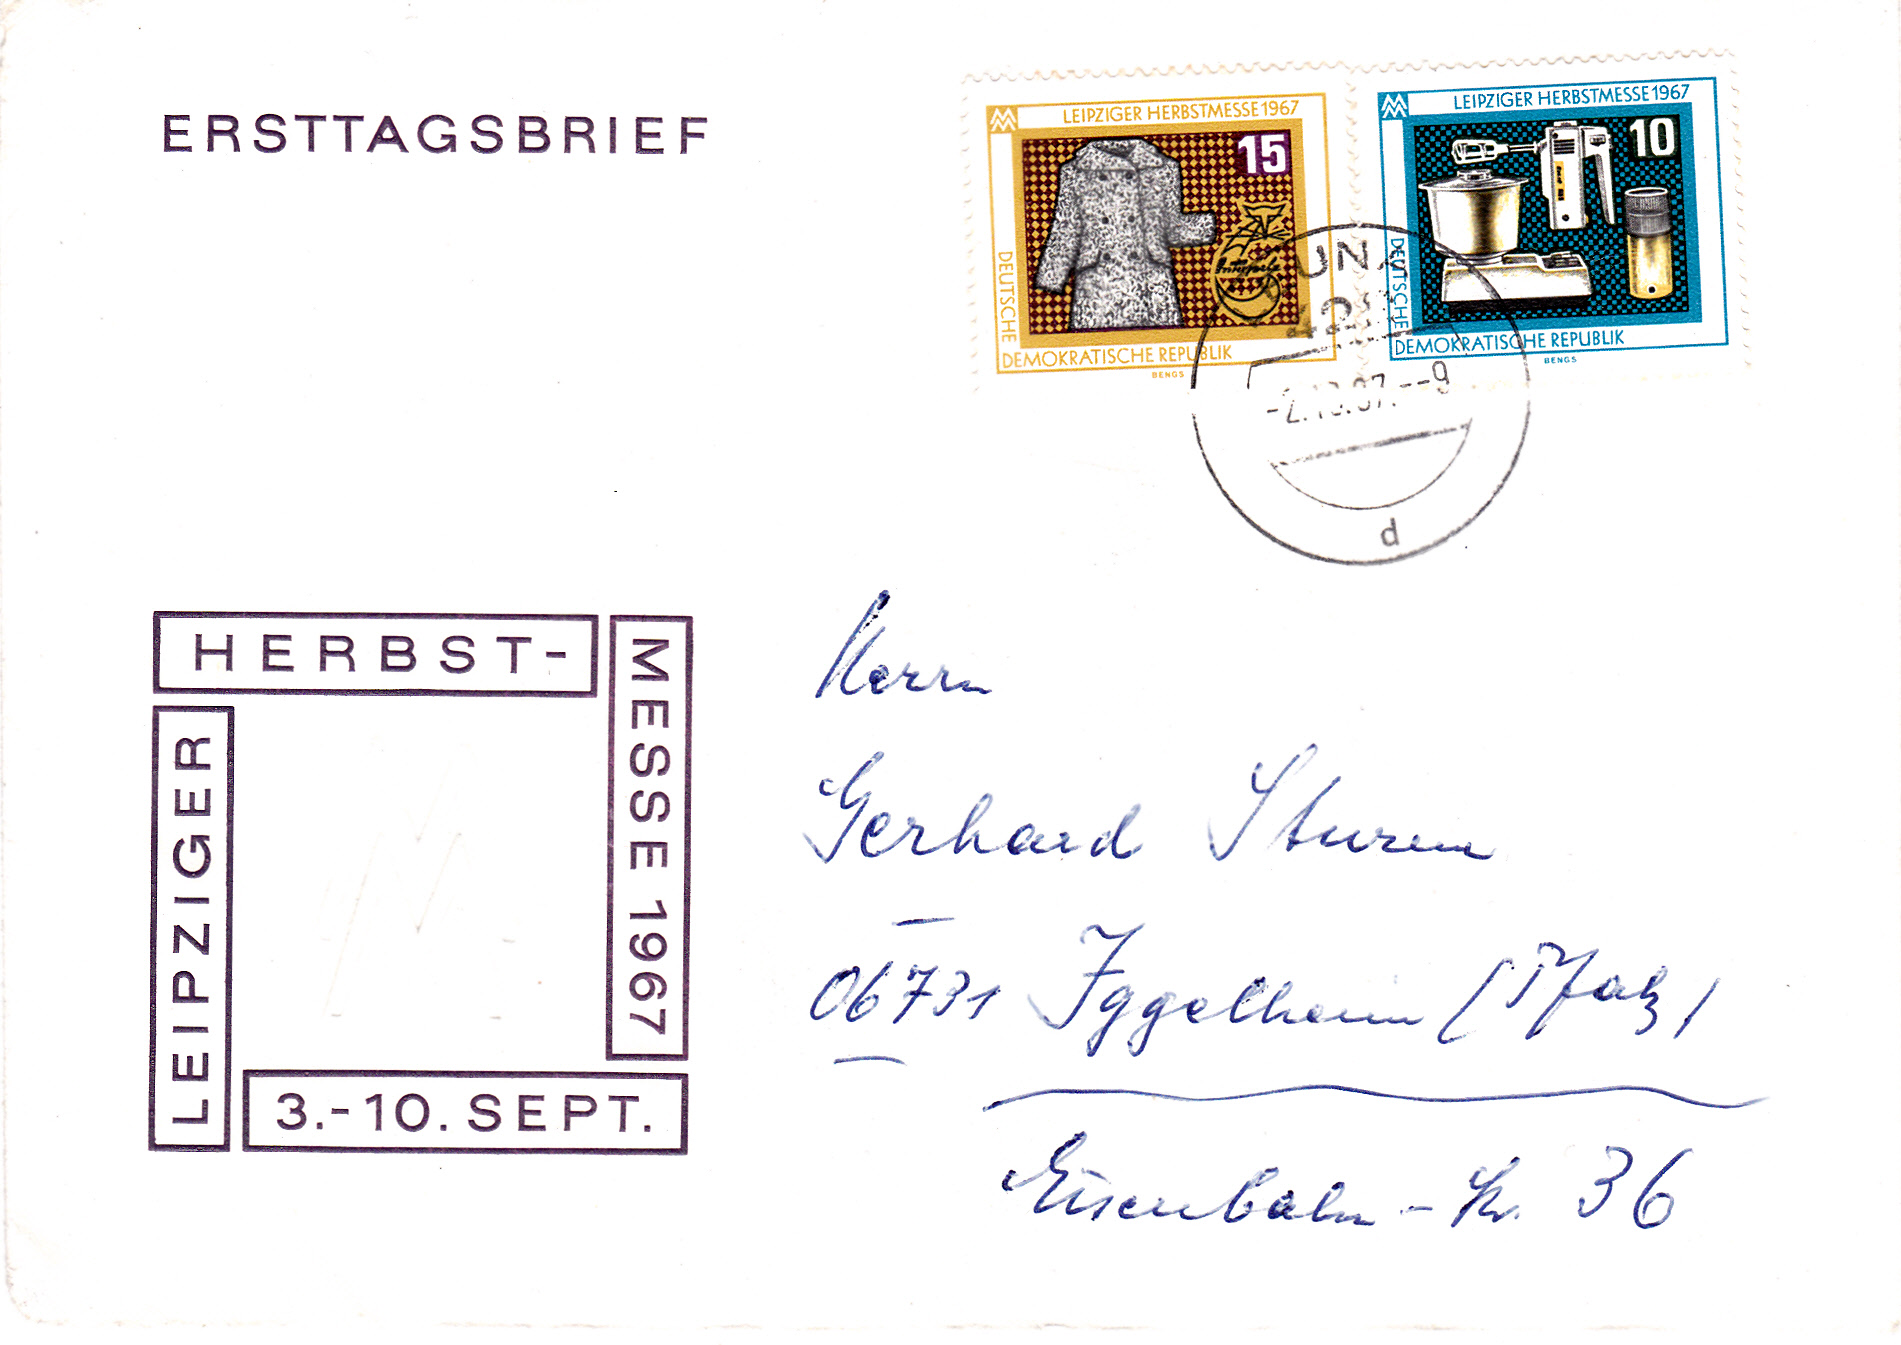 ERSTTAGSBRIEF
LEIPZIGER HERBSTMESSE 1967
15
DEUTSCHE
DEMOKRATISCHE REPUBLIK
BENGS
LEIPZIGER HERBSTMESSE 1967
10
DEUTSCHE
DEMOKRATISCHE REPUBLIK
BENGS
d
LEIPZIGER
HERBST-
MESSE 1967
3.-10. SEPT.
Herrn
Gerhard Sturm
06731 Iggelheim (Pfalz)
Eisenbahn-Str. 36